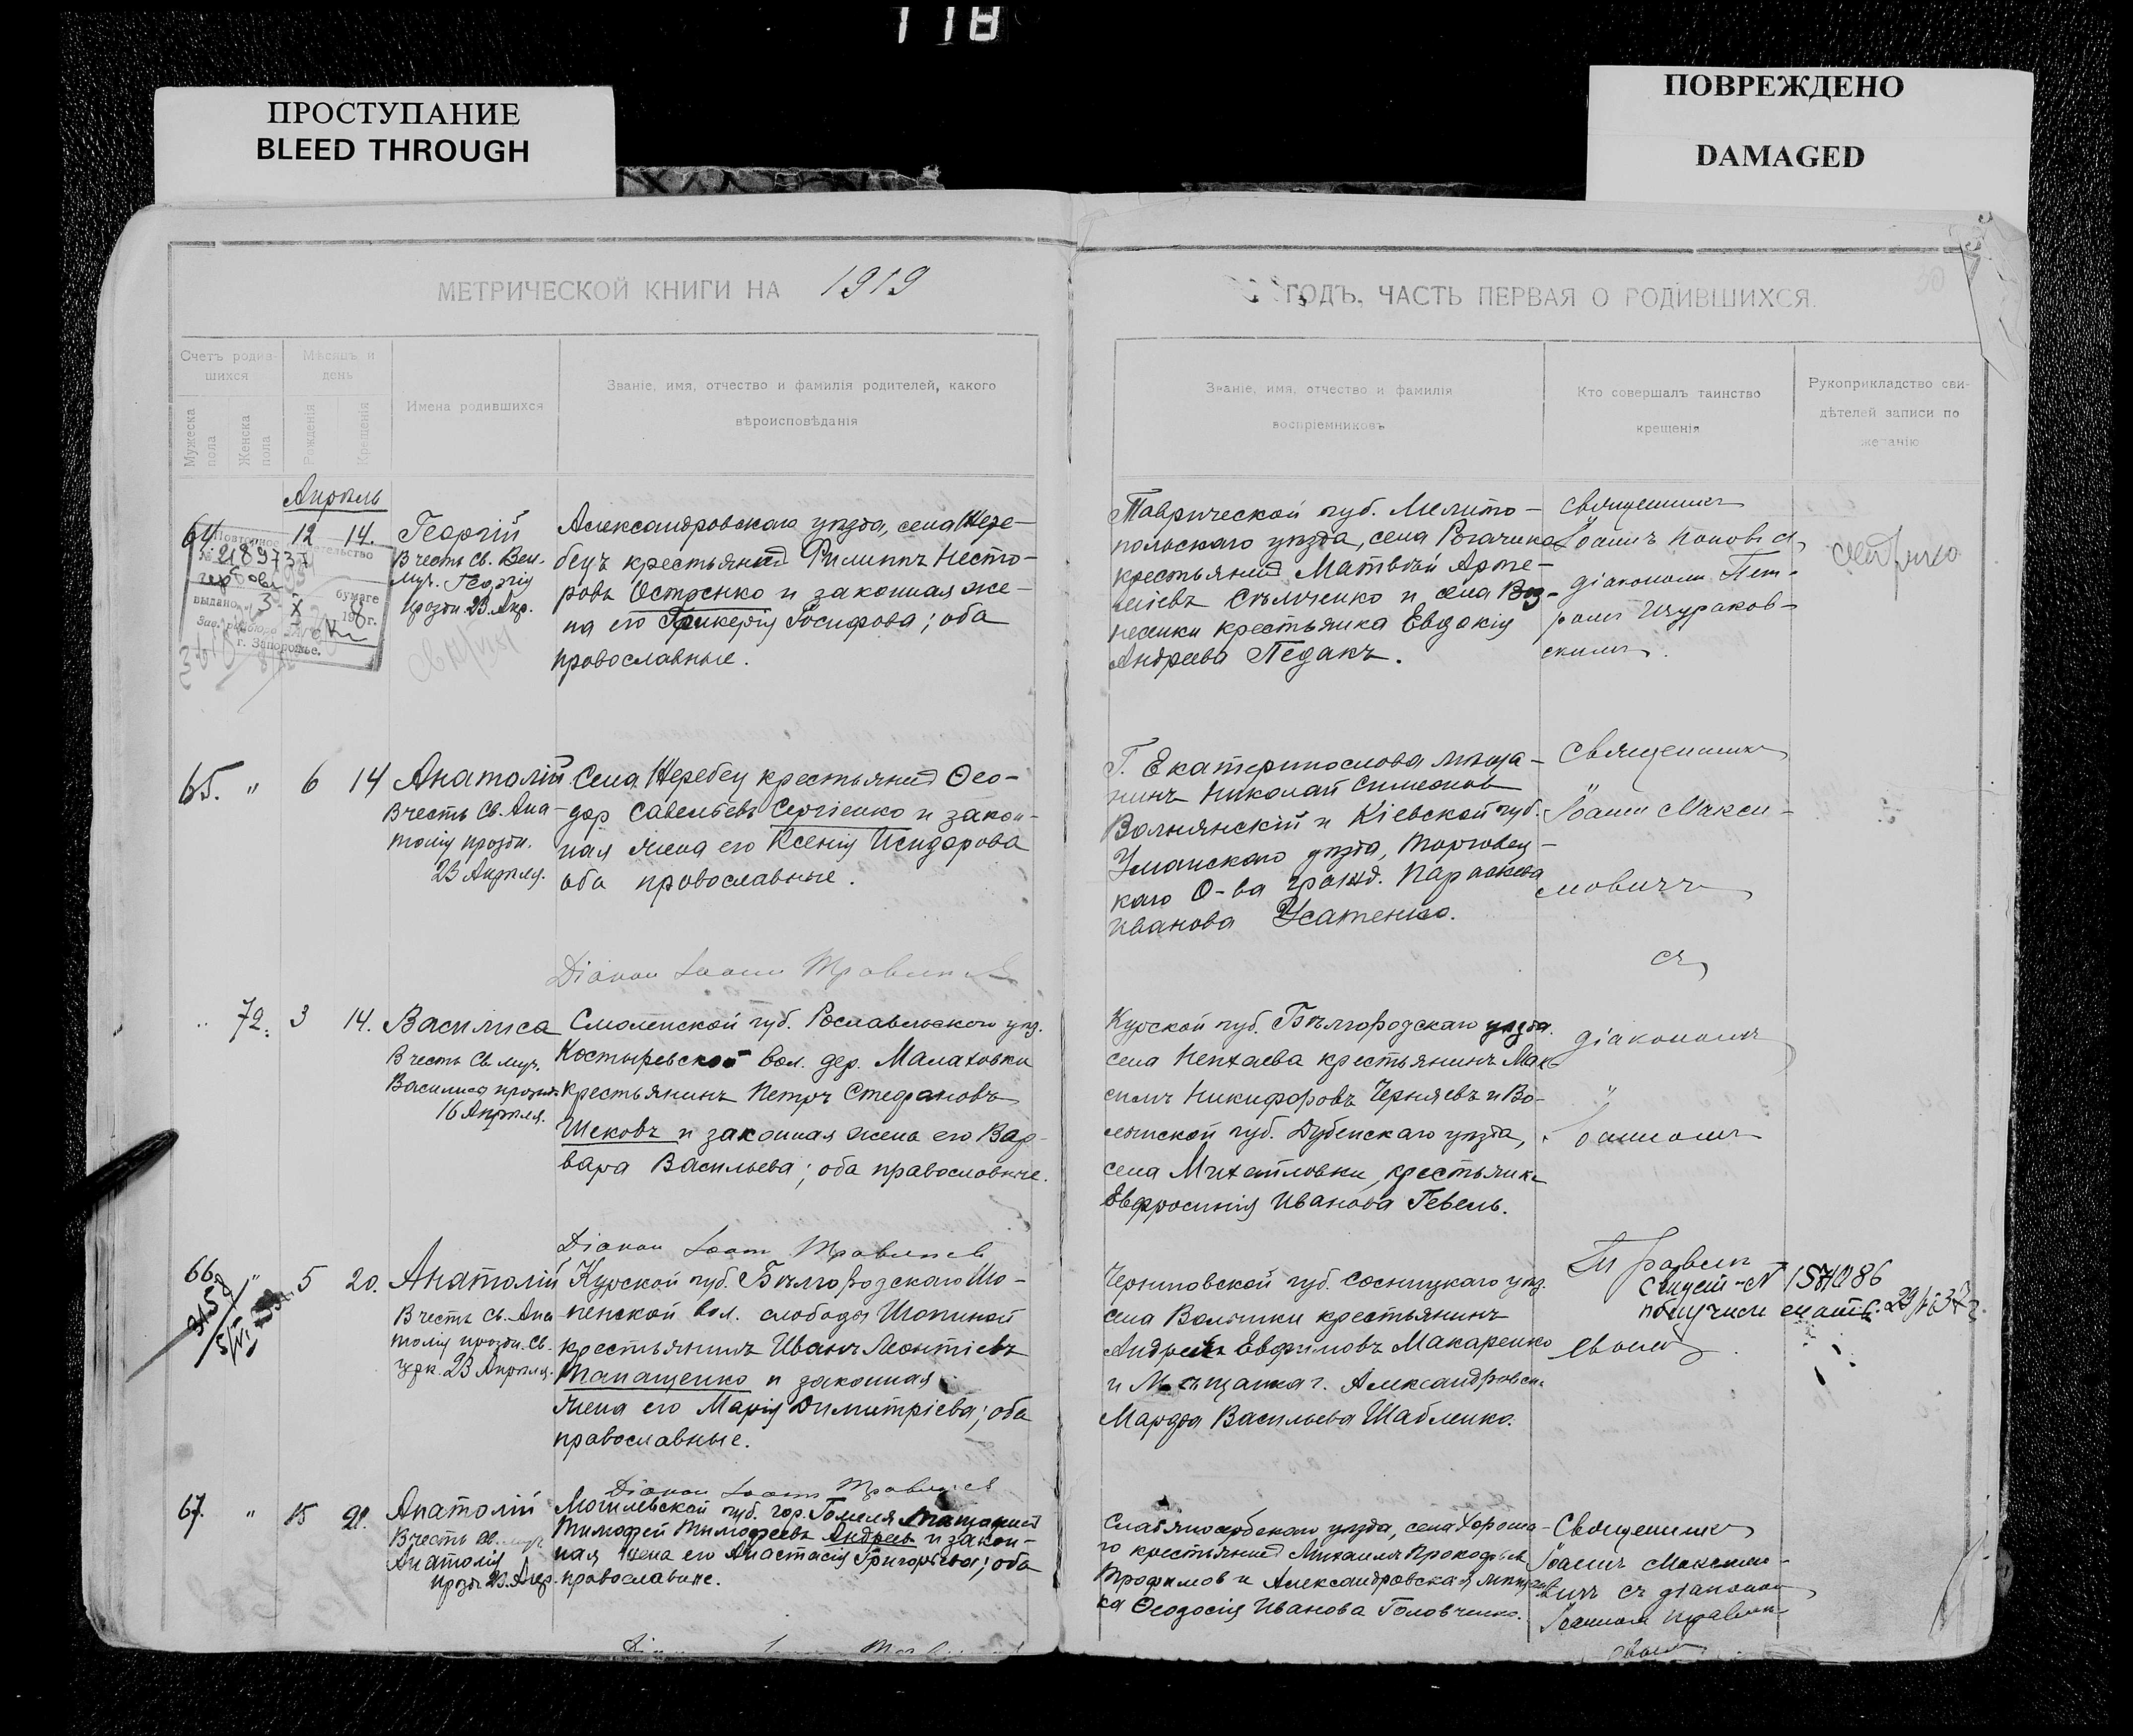 118
ПРОСТУПАНИЕ
BLEED THROUGH
ПОВРЕЖДЕНО
DAMAGED
МЕТРИЧЕСКОЙ КНИГИ НА 1919
ГОДЪ, ЧАСТЬ ПЕРВАЯ О РОДИВШИХСЯ.
Счетъ родив-
шихся
Мужеска пола
Женска пола
Мѣсяцъ и
день
Рожденія
Крещенія
Имена родившихся
Званіе, имя, отчество и фамилія родителей, какого
вѣроисповѣданія
Званіе, имя, отчество и фамилія
воспріемниковъ
Кто совершалъ таинство
крещенія
Рукоприкладство сви-
дѣтелей записи по
желанію
Апрѣль
64. 12 14.
Повторное свидетельство
№ 218973
гербовой бумаге
выдано 3 X 198 г.
г. Запорожье.
Георгій
В честь Св. Вел.
муч. Георгія
празди. 23. Апр.
Александровскаго уѣзда, села Жере-
бецъ крестьянинъ Филиппъ Несто-
ровъ Остренко и законная же-
на его Гликерія Іосифова; оба
православные.
Таврической губ. Мелито-
польскаго уѣзда, села Рогачика
крестьянинъ Матвѣй Арте-
міевъ и села Воз-
несенки крестьянка Евдокія
Андреева Педакъ.
Священникъ
Іоаннъ Поповъ съ
діакономъ Пет-
ромъ Шураков-
скимъ.
65. " 6 14 Анатолій
В честь Св. Ана-
толія празди.
23 Апрѣля.
Села Жеребец крестьянинъ Ѳео-
дор Савельевъ Сергіенко и закон-
ная жена его Ксенія Исидорова
оба православные.
Діакон Іоанн Травлинск
Г. Екатеринослова мѣща-
нинъ Николай Симеонов
Волнянскій и Кіевской губ.
Уманскаго уѣзда, Торговец-
каго О-ва гражд. Параскева
Иванова Усатенко.
Священникъ
Іоанн Макси-
мовичъ
съ
" 72. 3 14. Василиса
В честь Св. муч.
Василиса празди.
16 Апрѣля.
Смоленской губ. Рославльскаго уѣзд.
Костыревской вол. дер. Малаховки
крестьянинъ Петръ Стефановъ
Шековъ и законная жена его Вар-
вара Васильева; оба православные.
Курской губ. Бѣлгородскаго уѣзда.
села Нехаева крестьянинъ Мак-
симъ Никифоровъ Черняевъ и Во-
лынской губ. Дубенскаго уѣзда,
села Михайловки крестьянка
Евфросинія Иванова Гевель.
діакономъ
Іоанномъ
66. " 5 20. Анатолій
В честь Св. Ана
толія празди. Св.
23 Апрѣля.
Діакон Іоанн Травлинск
Курской губ. Бѣлгородскаго Шо-
пенской вол. слободы Шопиной
крестьянинъ Иванъ Леонтіевъ
Танащенко и законная
жена его Марія Димитріева; оба
православные.
Черниговской губ. Сосницкаго уѣзд.
села Волынки крестьянинъ
Андрей Евфимовъ Макаренко
и Мѣщанка г. Александровск.
Марѳа Васильева Шабленко.
67. " 15 21. Анатолій
В честь св. муч.
Анатолія
празди 23. Апр.
Діакон Іоанн Травлинск
Могилевской губ. гор. Гомеля мѣщанинъ
Тимофей Тимофеевъ Андреев и закон-
ная жена его Анастасія Григорьева; оба
православные.
Славяносербскаго уѣзда, села Хороша-
го крестьянинъ Михаилъ Прокофьев
Трофимов и Александровская мѣщан-
ка Ѳеодосія Иванова Головченко.
Священникъ
Іоаннъ Максимо-
вичъ съ діаконом
Іоанном Травлин-